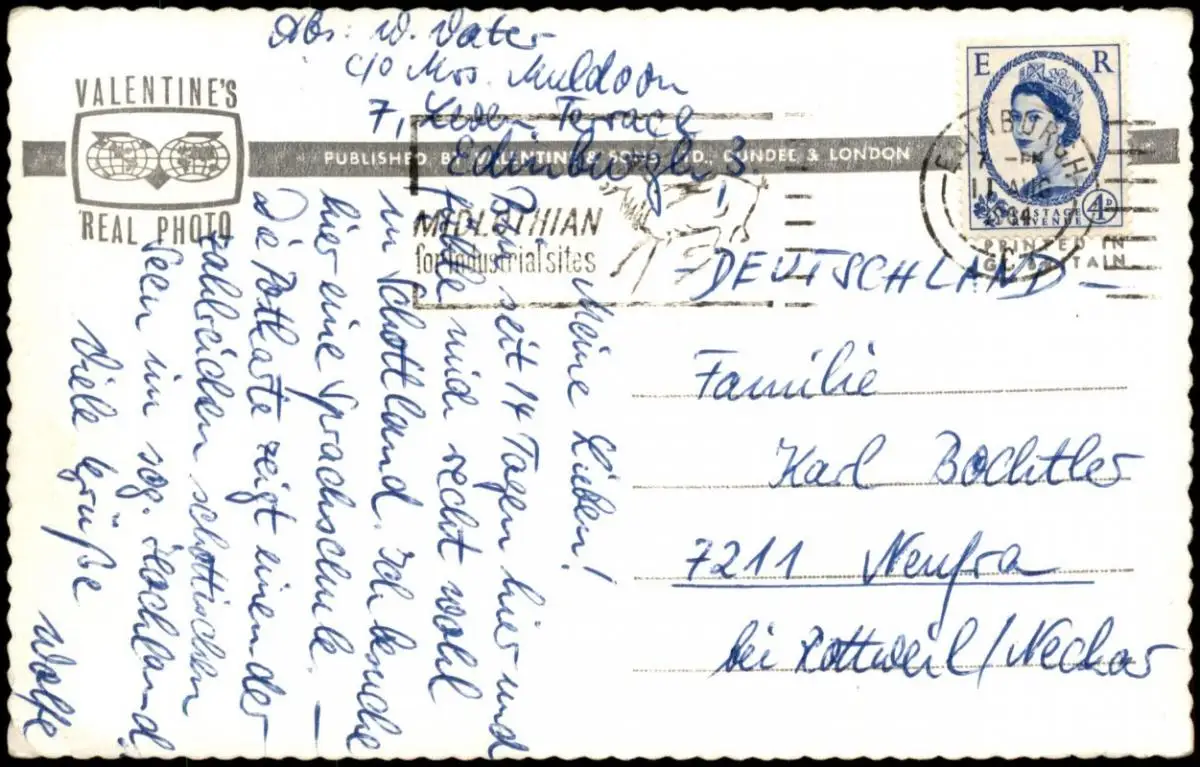 Abs: W. Vater
c/o Mrs. Muldoon
7, Leven Terrace
Edinburgh 3
VALENTINE'S
REAL PHOTO
PUBLISHED BY VALENTINE & SONS, LTD., DUNDEE & LONDON
MIDLOTHIAN
for industrial sites
E R
POSTAGE
REVENUE
4D
EDINBURGH
7 - PM
11 AUG
1964
PRINTED IN
GT. BRITAIN
- DEUTSCHLAND -
Familie
Karl Bochtler
7211 Neufra
bei Rottweil/Neckar
Meine Lieben!
Bin seit 14 Tagen hier und
fühle mich recht wohl
in Schottland. Ich besuche
hier eine Sprachschule. —
Die Postkarte zeigt einen der
zahlreichen schottischen
Seen im sog. Hochland
Viele Grüße
Wolfe